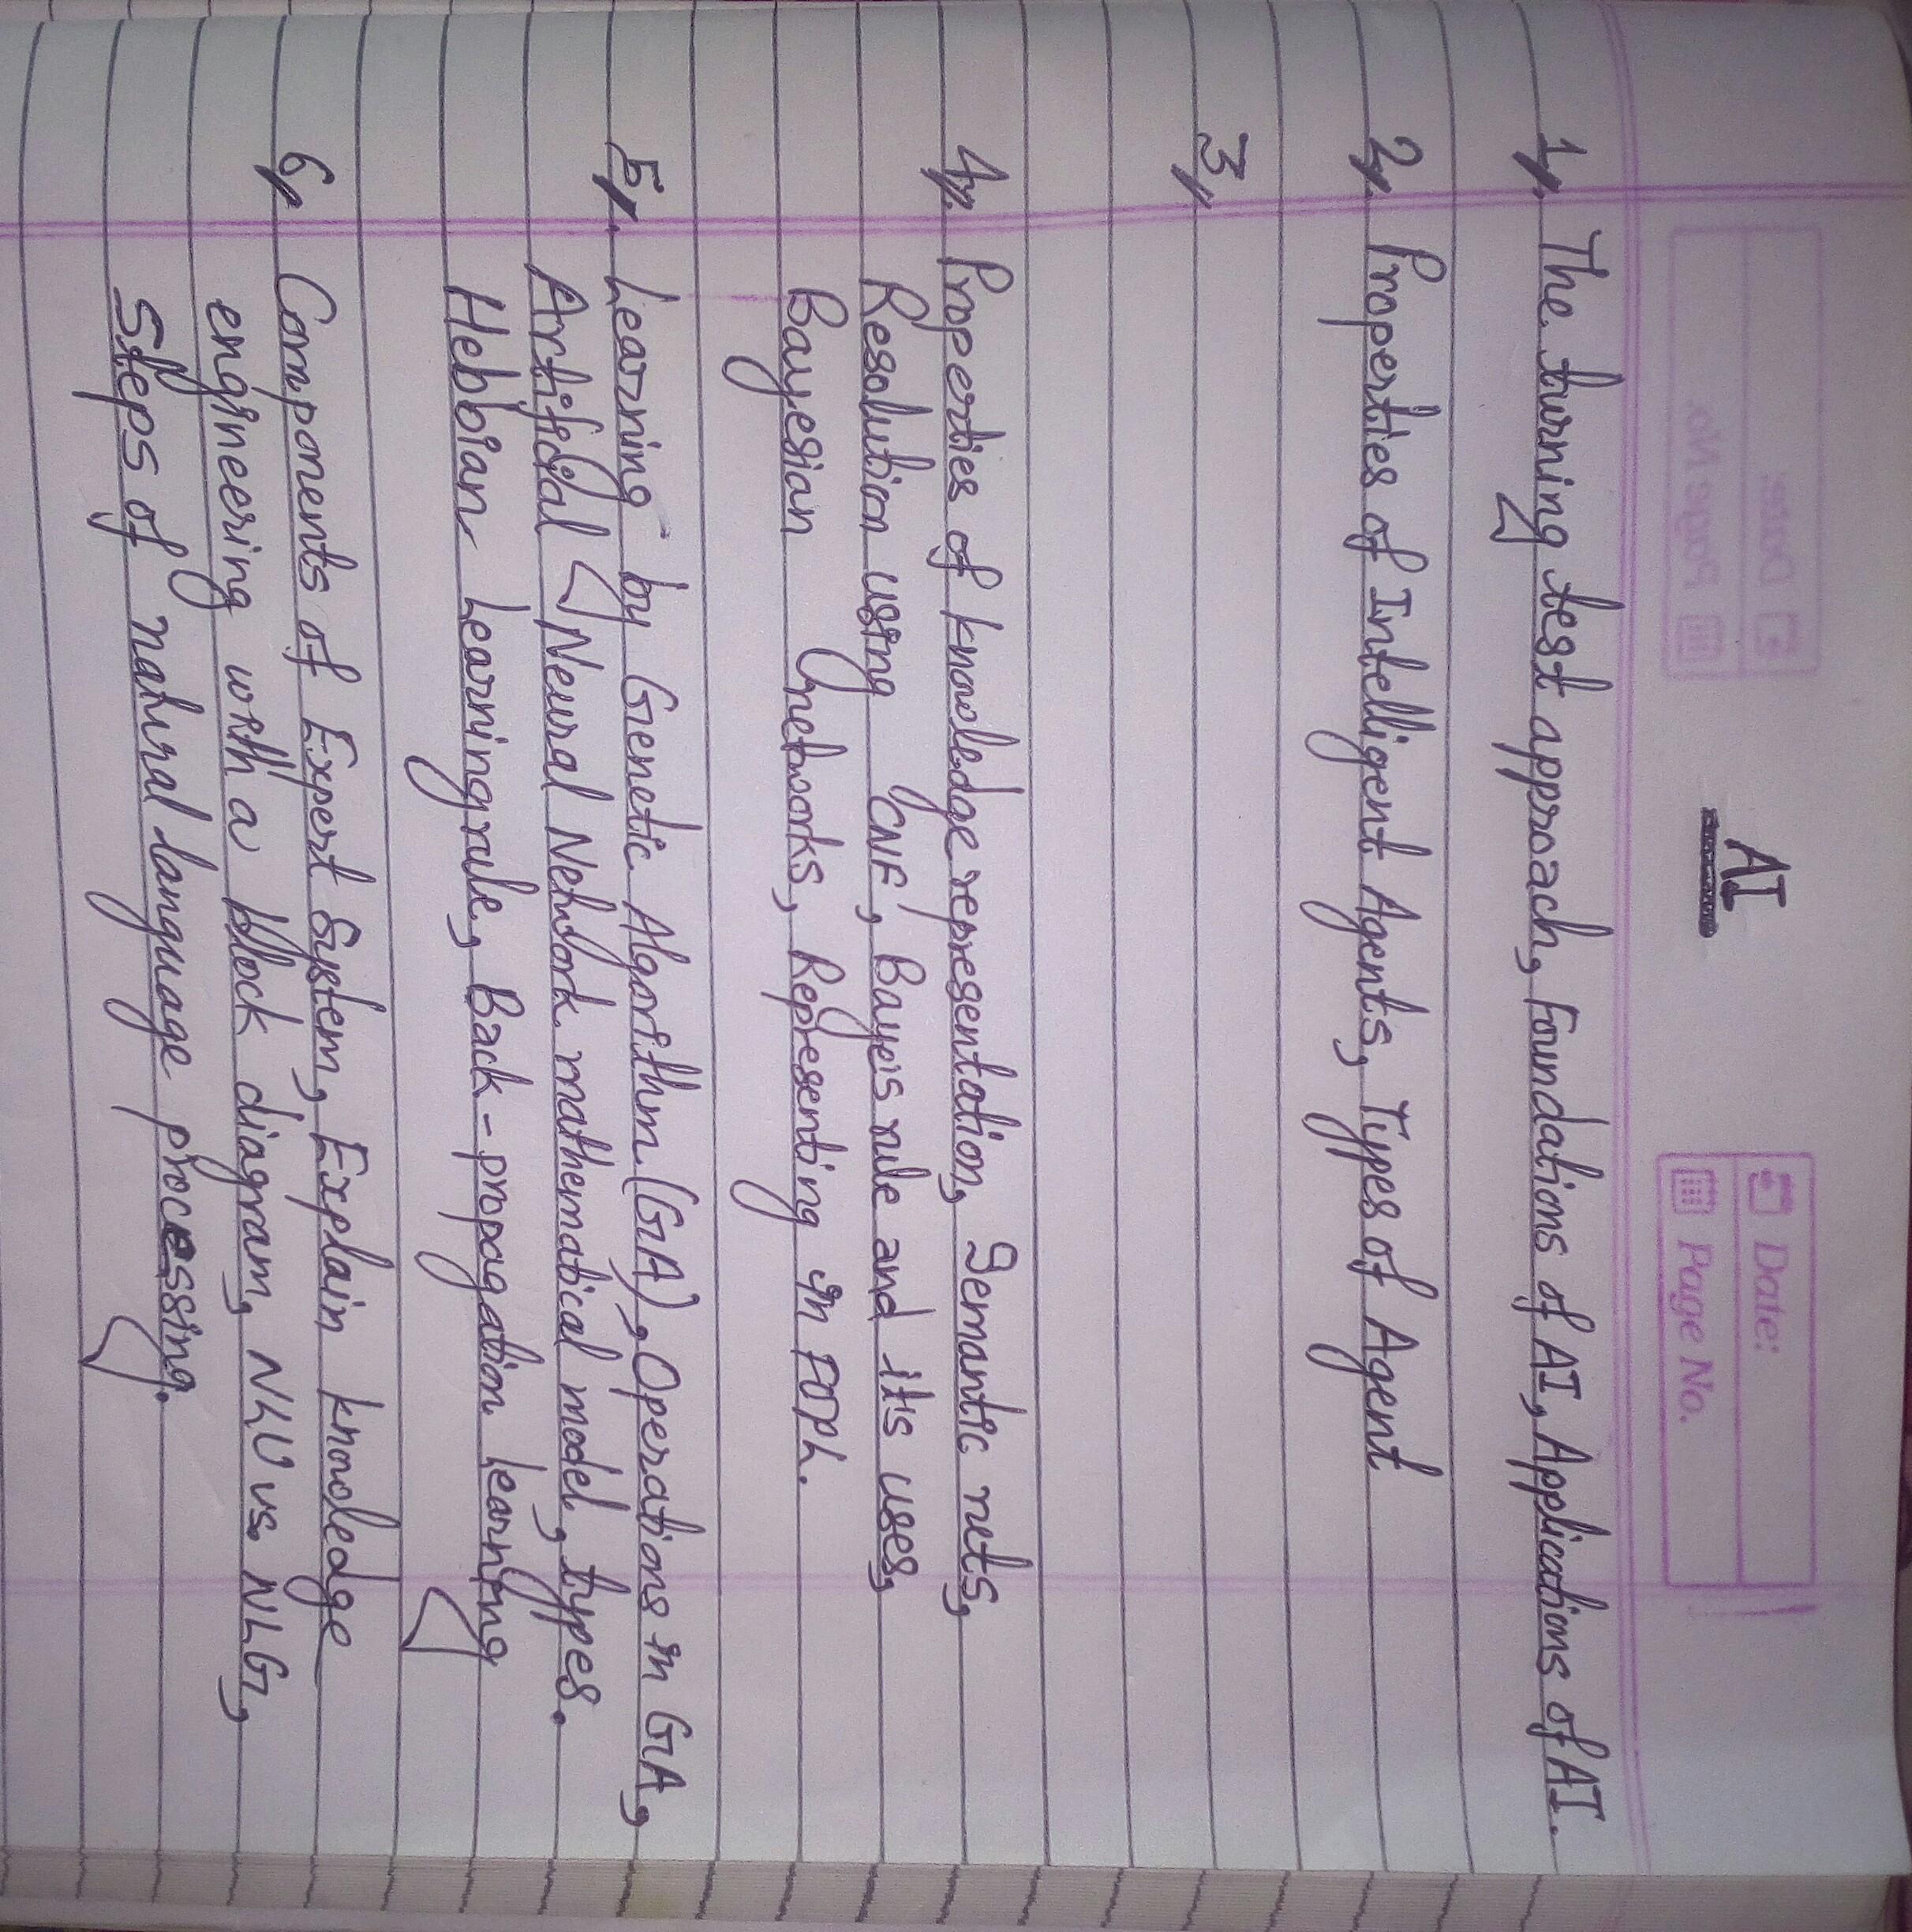 AI
Date:
Page No.
1, The turning test approach, Foundations of AI, Applications of AI.
2, Properties of Intelligent Agents, Types of Agent
3,
4, Properties of knowledge representation, Semantic nets,
Resolution using CNF, Baye's rule and it's uses,
Bayesian networks, Representing in FOPL.
5, Learning by Genetic Algorithm (GA), Operations in GA,
Artificial Neural Network mathematical model, types.
Hebbian Learning rule, Back-propagation learning
6, Components of Expert System, Explain knowledge
engineering with a block diagram, NLU vs. NLG,
Steps of natural language processing.